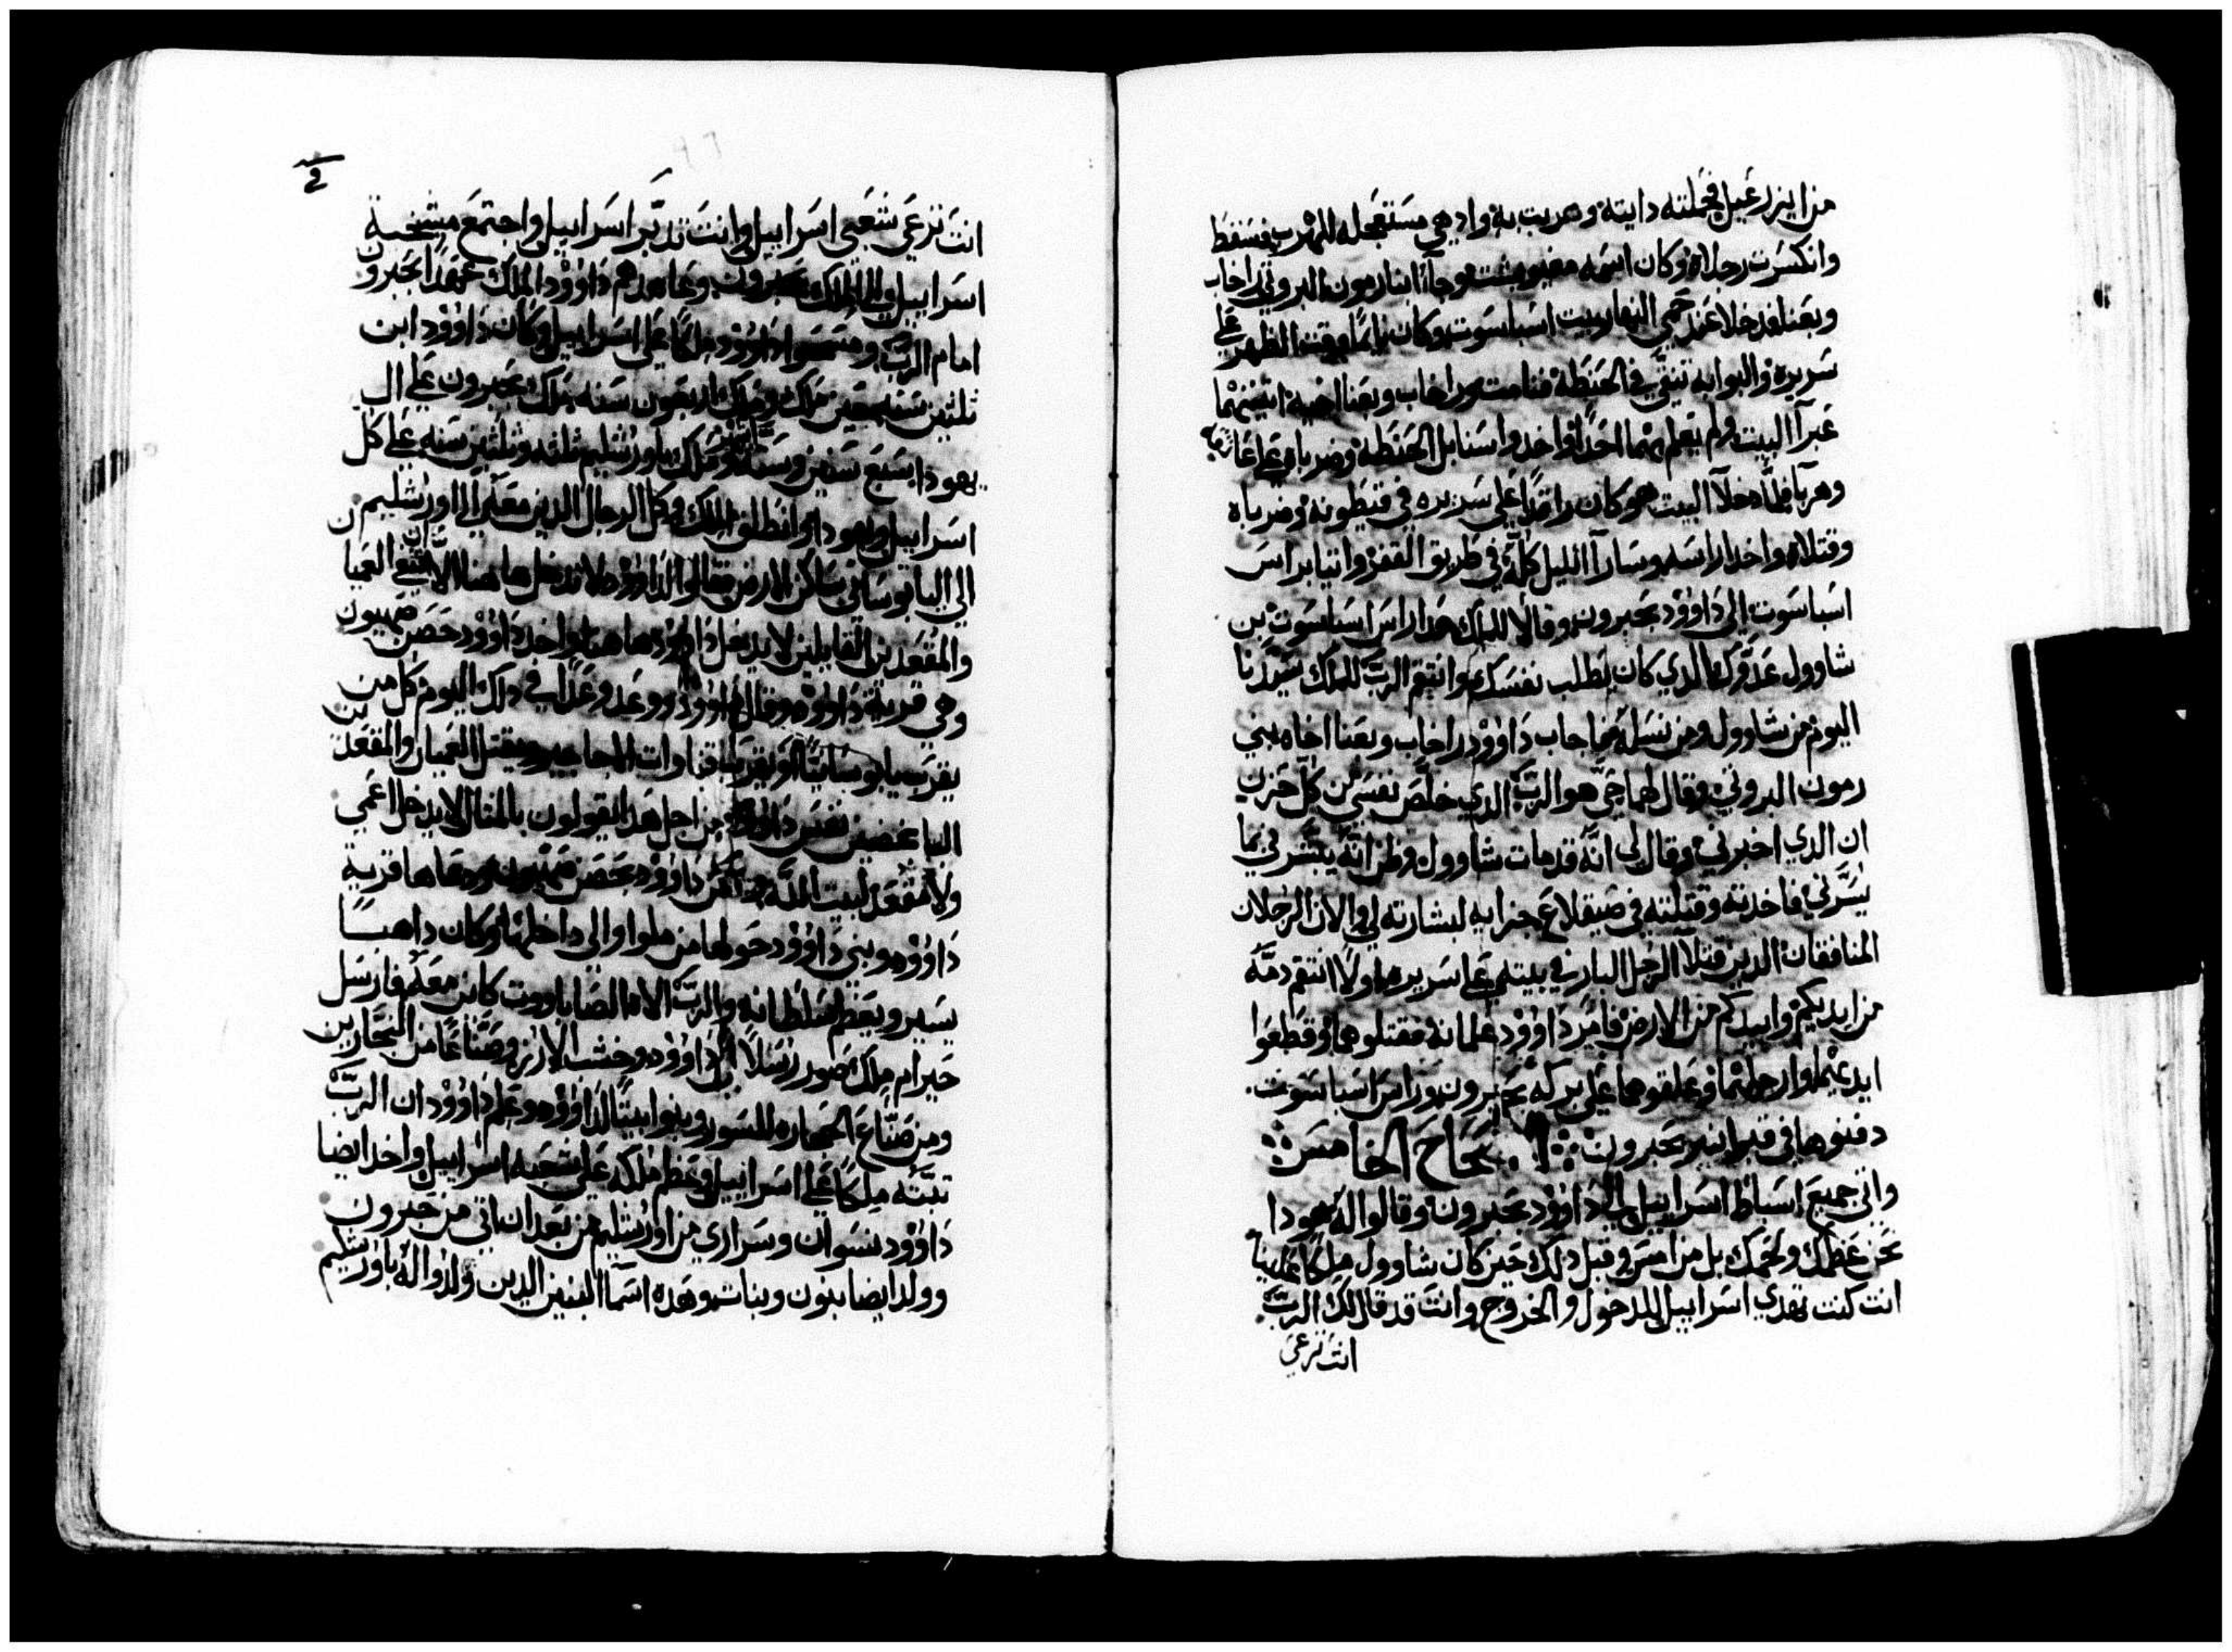 من ايزرعيل فحملته دايته وهربت به واد هي مستعجله للهرب فسقط
وانكسرت رجلاه وكان اسمه مفيبوشت وجاآ ابنا رمون البروتي راخاب
وبعنا فدخلا عند حمي النهار بيت اسباسوت وكان نايما وقت الظهر علي
سريره والبوابه تنقي في الحنطة فنامت وراخاب وبعنا اخيه اتنينهما
عبرآ البيت ولم يعلم بهما احدا واخدوا سنابل الحنطة وضرباه علي
وهربآ فلما دخلآ البيت هو كان راقدا علي سريره في قيطونه وضرباه
وقتلاه واخدا راسه وسارآ الليل كله في طريق القفر واتيا براس
اسباسوت الي داوود بحبرون وقالا للملك هدا راس اسباسوت بن
شاوول عدوك الدي كان يطلب نفسك وانتقم الرب للملك سيدنا
اليوم من شاوول ومن نسله فاجاب داوود راخاب وبعنا اخاه بني
رمون البروتي وقال لهما حي هو الرب الدي خلص نفسي من كل حزن
ان الدي اخبرني وقال لي انه قد مات شاوول وظن انه يبشرني بما
يسرني فاخدته وقتلته في صيقلاغ جزايه لبشارته لي والان الرجلان
المنافقان الدين قتلآ الرجل البار في بيته علي سريره اولا انتقم دمه
من ايديكم وابيدكم من الارض فامر داوود غلمانه فقتلوهما وقطعوا
ايديهما وارجلهما وعلقوهما علي بركة حبرون وراس اسباسوت
دفنوها في قبر ابنير بحبرون الاصحاح الخامس
واتي جميع اسباط اسراييل الي داوود بحبرون وقالوا له هودا
نحن عظمك ولحمك بل من امس وقبل دلك حين كان شاوول ملكا علينا
انت كنت تهدي اسراييل للدخول والخروج وانت قد قال لك الرب
انت ترعي
انت ترعي شعبي اسراييل وانت تدبر اسراييل واجتمع مشيخة
اسراييل الي الملك بحبرون وعاهدهم داوود الملك عهدا بحبرون
امام الرب ومسحوا داوود ملكا علي اسراييل وكان داوود ابن
ثلثين سنه حين ملك وملك اربعون سنه ملك بحبرون علي ال
يهودا سبع سنين وستة اشهر وملك باورشليم ثلثه وثلثين سنه علي كل
اسراييل ويهودا وانطلق الملك وكل الرجال الدين معه الي اورشليم
الي اليابوساني ساكن الارض فقالوا لداوود لا تدخل ها هنا الا ان تنفي العميا
والمقعدين القايلين لا يدخل داوود ها هنا واخد داوود حصن صهيون
وهي قرية داوود وقال داوود ووعد وعدا في دلك اليوم كل من
يقرب يابوسانيا او يقرب قناوات المجاري ويقتل العميان والمقعدين
الباغضين نفس داوود من اجل هدا يقولون بالمثال لا يدخل اعمي
ولا مقعد لبيت الله وسكن داوود بحصن صهيون ودعاها قرية
داوود وبني داوود حولها من ملوا والي داخلها وكان داهبا
يسير ويعظم سلطانه والرب الاه الصاباووت كاين معه فارسل
حيرام ملك صور رسلا الي داوود وخشب الارز وصناعا من النجارين
ومن صناع الحجاره للسور وبنوا بيتا لداوود وعلم داوود ان الرب
تبته ملكا علي اسراييل وعظم ملكه علي شعبه اسراييل واخد ايضا
داوود نسوان وسراري من اورشليم من بعد ان اتي من حبرون
وولد ايضا بنون وبنات وهده اسمآ البنين الدين ولدوا له باورشليم